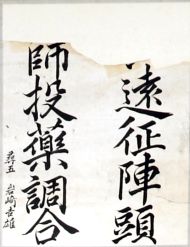 遠征陣頭
師投藥調合
尋五 岩崎吉雄